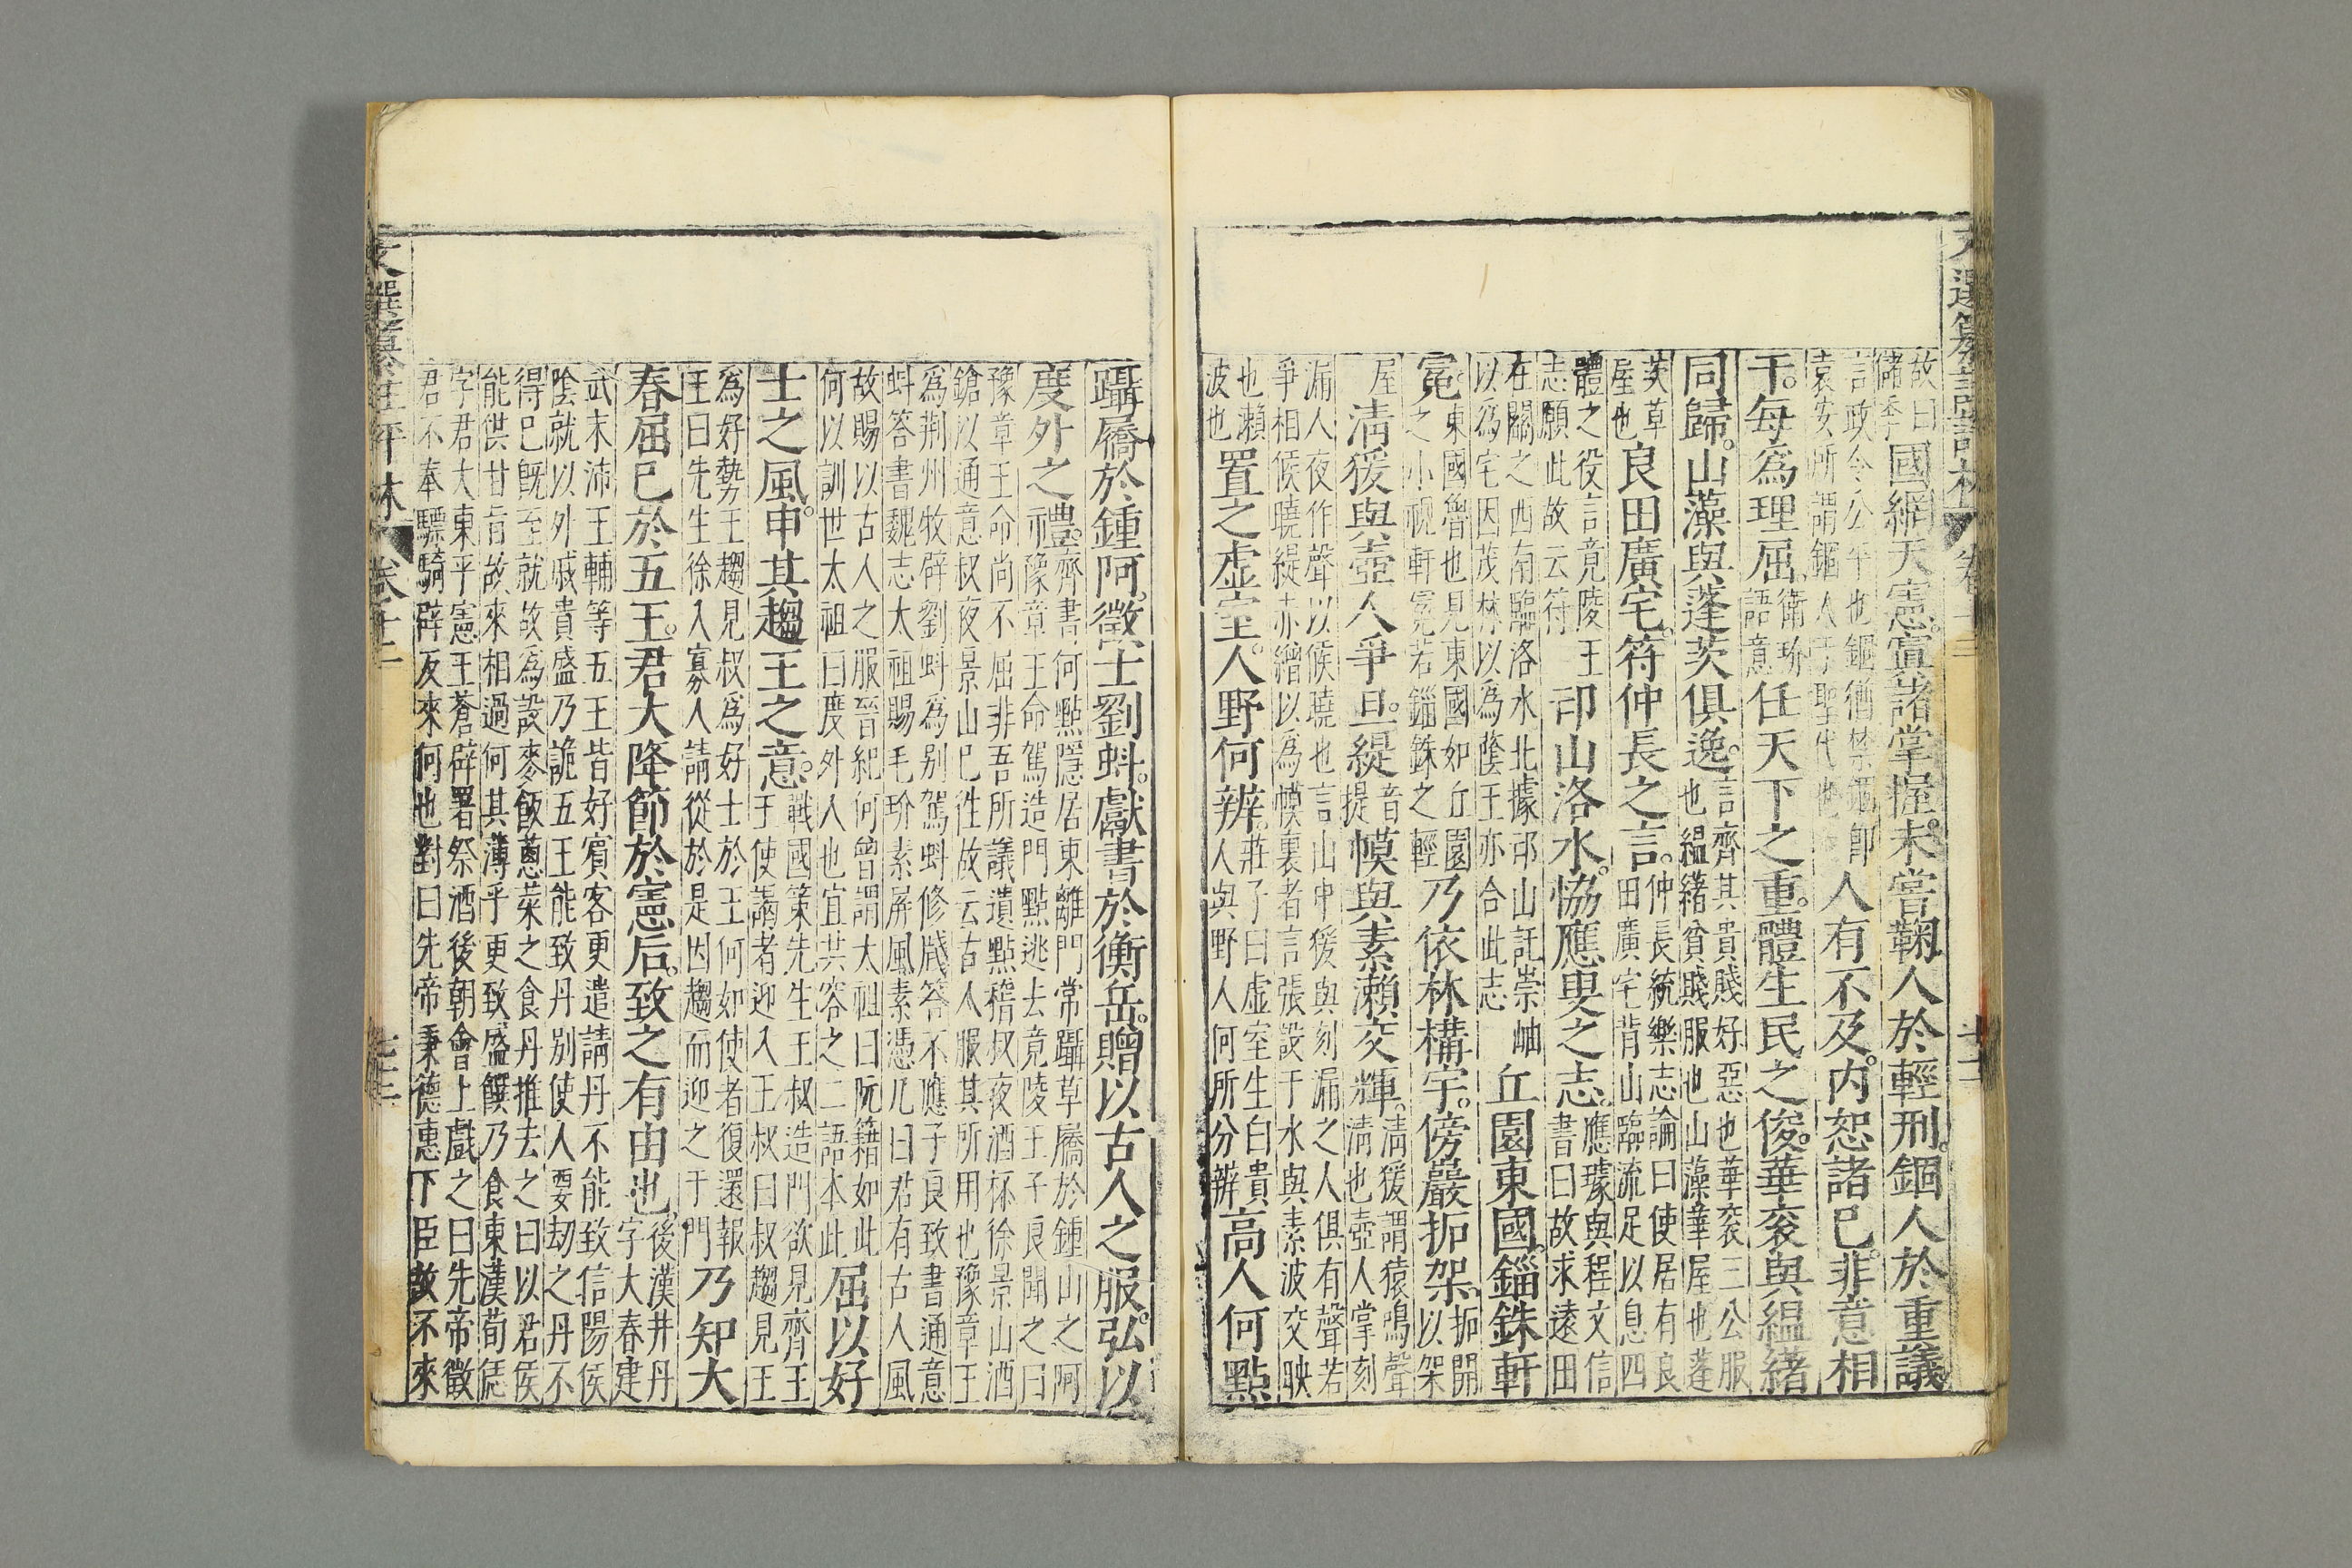 故曰
儲季國網天憲寘諸掌握未嘗鞠人於輕刑錮人於重議
言政令公平也錮猶禁錮卽
袁安所謂錮人于聖代也人有不及内恕諸巳非意相
干每爲理屈衛玠
語意任天下之重體生民之俊華衮與緼緒
同歸山藻與蓬茨俱逸言齊其貴賤好惡也華衮三公服
也緼緒貧賤服也山藻華屋也蓬
茨草
屋也良田廣宅符仲長之言仲長統樂志論曰使居有良
田廣宅背山臨流足以息四
體之役言竟陵王
志願此故云符邙山洛水恊應叟之志應璩與程文信
書曰故求遠田
在關之西南臨洛水北據邙山託崇岫
以爲宅因茂林以爲蔭王亦合此志丘園東國錙銖軒
冕東國魯也見東國如丘園
之小视軒冕若錙銖之輕乃依林構宇傍巖拓架拓開
以架
屋清猨與壺人爭旦緹音
提幙與素瀨交輝清猨謂猿鳴聲
清也壺人掌刻
漏人夜作聲以候曉也言山中猨與刻漏之人俱有聲若
爭相候曉緹赤繒以爲幙裏者言張設于水與素波交映
也瀨
波也置之虚室人野何辨莊子曰虚室生白貴
人與野人何所分辨高人何點
躡屩於鍾阿徵士劉虯獻書於衡岳贈以古人之服弘以
度外之禮齊書何點隱居東離門常躡草屩於鍾山之阿
豫章王命駕造門點逃去竟陵王子良聞之曰
豫章王命尚不屈非吾所議遺點嵇叔夜酒杯徐景山酒
鎗以通意叔夜景山巳徃故云古人服其所用也豫章王
爲荆州牧辟劉虯爲別駕虯修牋答不應子良致書通意
虯答書魏志太祖賜毛玠素屏風素憑几曰君有古人風
故賜以古人之服晉紀何曾謂太祖曰阮籍如此
何以訓世太祖曰度外人也宜共容之二語本此屈以好
士之風申其趨王之意戰國策先生王叔造門欲見齊王
王使謁者迎入王叔曰叔趨見王
爲好勢王趨見叔爲好士於王何如使者復還報
王曰先生徐入寡人請從於是因趨而迎之于門乃知大
春屈巳於五王君大降節於憲后致之有由也後漢井丹
字大春建
武末沛王輔等五王皆好賔客更遣請丹不能致信陽侯
陰就以外戚貴盛乃詭五王能致丹別使人要刼之丹不
得巳旣至就故爲設麥飯葱菜之食丹推去之曰以君侯
能供甘旨故來相過何其薄乎更致盛饌乃食東漢荀恁
字君大東平憲王蒼辟署祭酒後朝會上戲之曰先帝徵
君不奉驃騎辟反來何也對曰先帝秉德惠下臣故不來